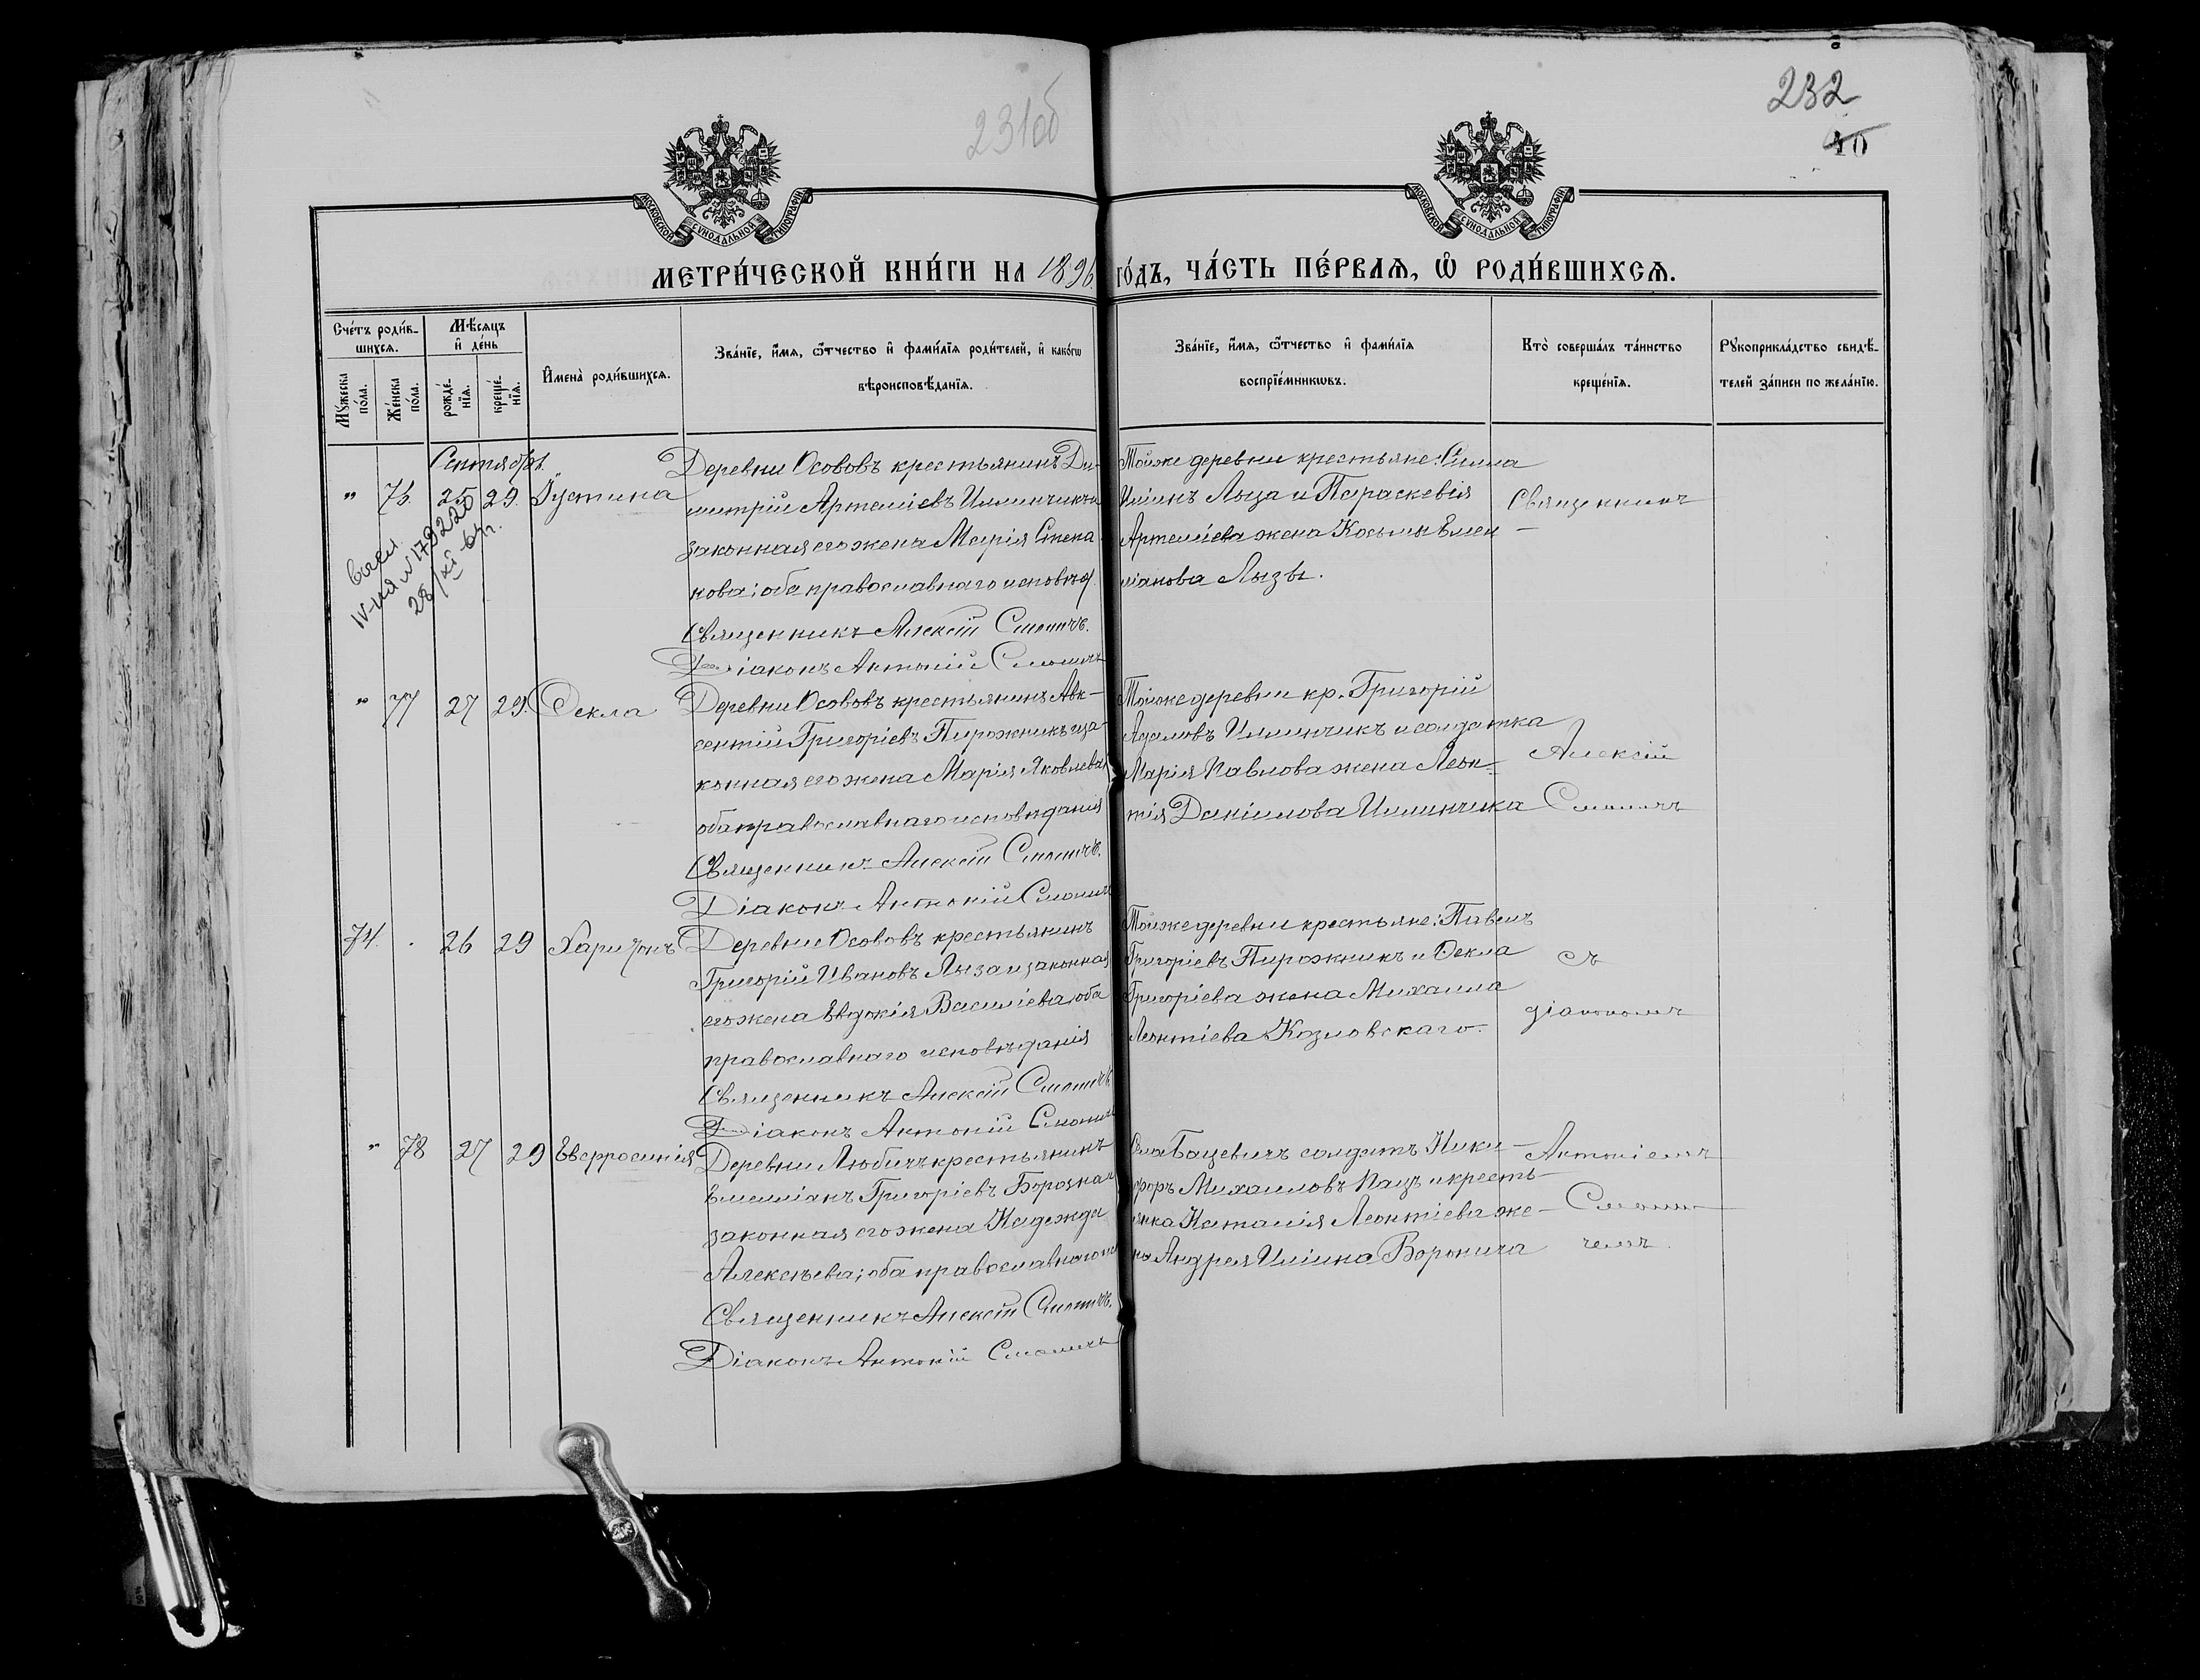 231об
232
10
МОСКОВСКОЙ СѴНОДАЛЬНОЙ ТИПОГРАФІИ
МОСКОВСКОЙ СѴНОДАЛЬНОЙ ТИПОГРАФІИ
МЕТРИ́ЧЕСКОЙ КНИ́ГИ НА 1896 ГО́ДЪ, ЧА́СТЬ ПЕ́РВАЯ, Ѡ РОДИ́ВШИХСѦ.
Сче́тъ роди́в-
шихсѧ.
Мꙋ́жеска по́ла.
Же́нска по́ла.
Мѣ́сѧцъ
и҆ де́нь
рожде́-
нїѧ.
креще́-
нїѧ.
И҆мена̀ роди́вшихсѧ.
Зва́нїе, и҆́мѧ, ѻ҆́тчество и҆ фами́лїѧ роди́телей, и҆ како́гѡ
вѣроисповѣ́данїѧ.
Зва́нїе, и҆́мѧ, ѻ҆́тчество и҆ фами́лїѧ
воспрїе́мникѡвъ.
Кто̀ соверша́лъ та́инство
креще́нїѧ.
Рꙋкоприкла́дство свидѣ́-
телей за́писи по жела́нїю.
Сентябрь.
" 76. 25 29. Іустина
Деревни Осововъ крестьянинъ Ди-
митрій Артеміевъ Илминчикъ и
законная его жена Марія Степа-
нова; оба православнаго исповѣд.
Священникъ Алексій Смоличъ.
Діаконъ Антоній Смоличъ
Тойже деревни крестьяне: Симма
Иліинъ Лыза и Параскевія
Артеміева жена Косьмы Емел-
ліанова Лызы.
Священникъ
IV-ая № 179220
28/XI
" 77 27 29. Ѳекла
Деревни Осововъ крестьянинъ Авк-
сентій Григоріевъ Пирожникъ и за-
конная его жена Марія Яковлева;
оба православнаго исповѣданія
Священникъ Алексій Смоличъ.
Діаконъ Антоній Смоличъ
Тойже деревни кр. Григорій
Адамовъ Илминчикъ и солдатка
Марія Павлова жена Леон-
тія Даніилова Илминчика
Алексій
Смоличъ
74. . 26 29 Харитонъ
Деревни Осововъ крестьянинъ
Григорій Ивановъ Лыза и законная
его жена Евдокія Василіева; оба
православнаго исповѣданія
Священникъ Алексій Смоличъ.
Діаконъ Антоній Смоличъ
Тойже деревни крестьяне: Павелъ
Григоріевъ Пирожникъ и Ѳекла
Григоріева жена Михаила
Леонтіева Козловскаго.
съ
діакономъ
" 78 27 29 Евфросинія
Деревни Любичъ крестьянинъ
Емелліанъ Григоріевъ Борозна и
законная его жена Надежда
Алексѣева; оба православнаго ис
Священникъ Алексій Смоличъ.
Діаконъ Антоній Смоличъ
Села Бацевичъ солдатъ Ники-
форъ Михаиловъ Пацъ и кресть-
янка Наталія Леонтіева же-
на Андрея Иліина Воронича
Антоніемъ
Смоли-
чемъ.